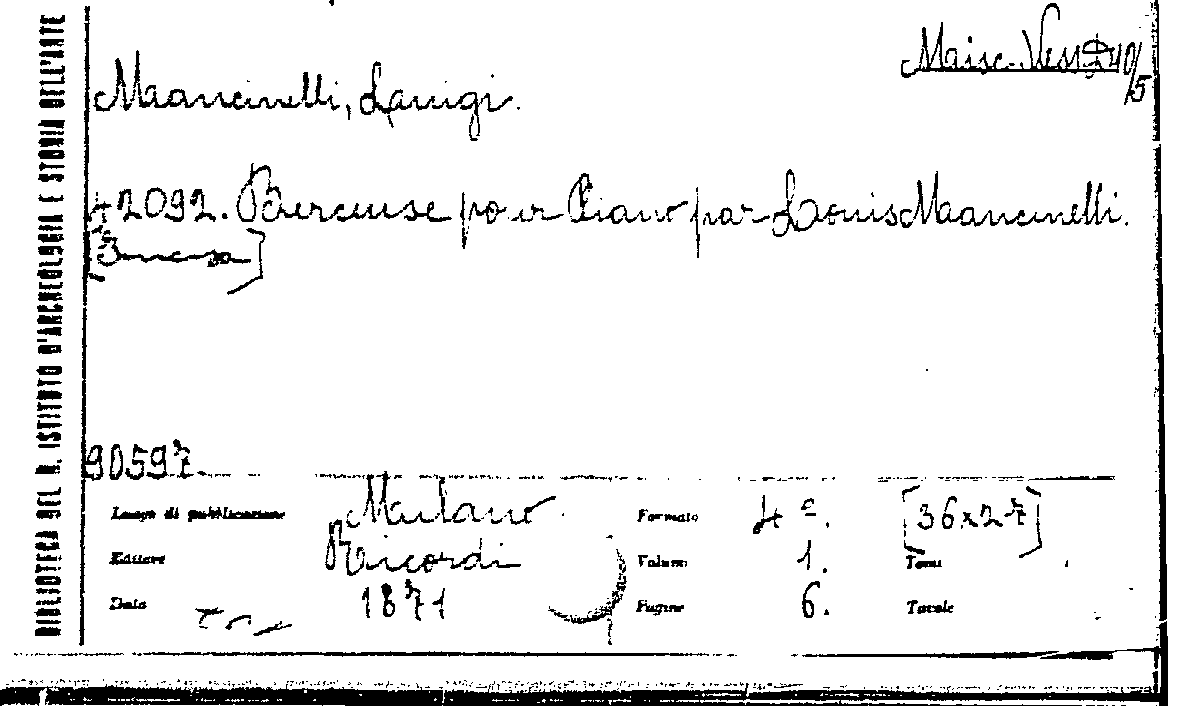 BIBLIOTECA DEL R. ISTITUTO D'ARCHEOLOGIA E STORIA DELL'ARTE
Misc. Vess. 40/5
Mancinelli, Luigi.
42092. Berceuse pour Piano par Louis Mancinelli.
90597
Luogo di pubblicazione Milano. Formato 4º. [36x27]
Editore Ricordi Volumi 1. Tomi
Data 1871 Pagine 6. Tavole